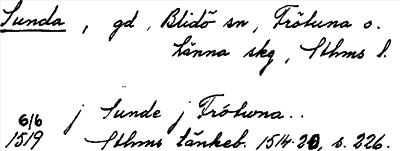 Sunda, gd, Blidö sn, Frötuna o.
Länna skg, Sthms l.
j Sunde j Frötwna..
6/6
1519 Sthms tänkeb. 1514-20, s. 226.